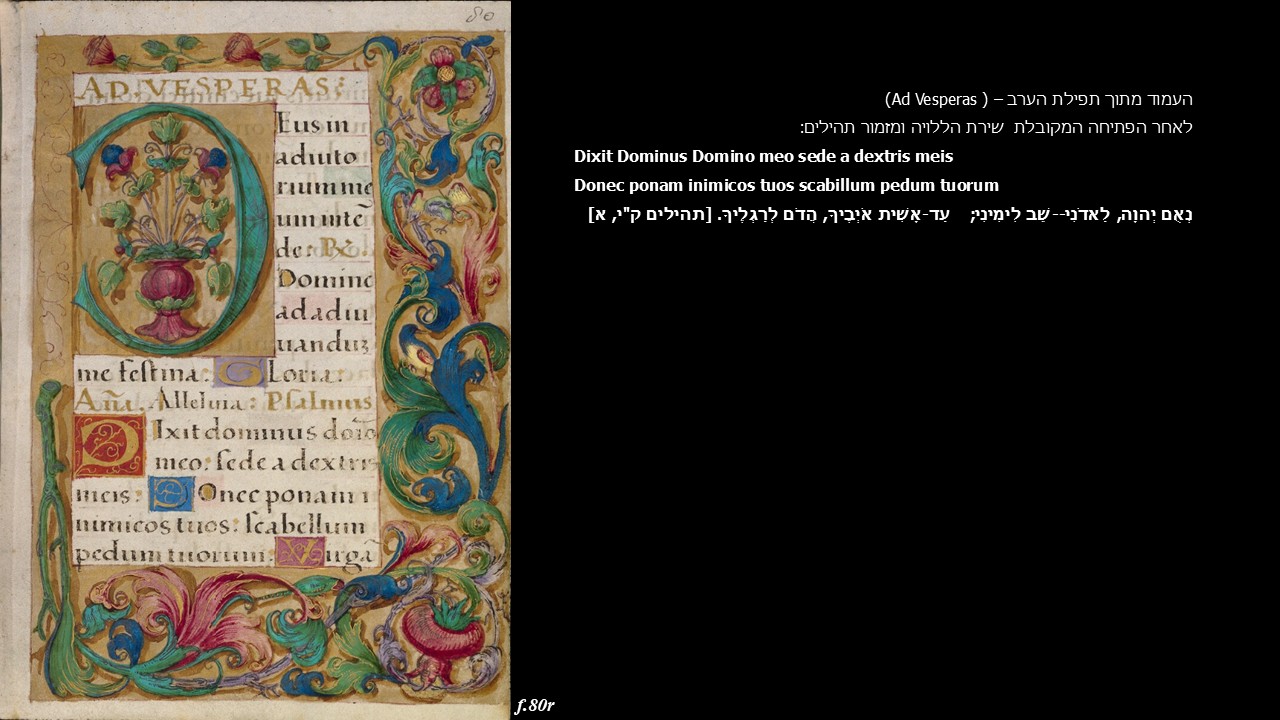 AD. VESPERAS:
DEus in
adiuto
rium me
um inte
de: Rx.
Domine
ad adiu
uanduz
me festina: Gloria:
Aña. Alleluia: Psalmus
Dixit dominus doio
meo: sede a dextris
meis: Donec ponam i
nimicos tuos: scabellum
pedum tuorum: Virga
העמוד מתוך תפילת הערב – ( Ad Vesperas)
לאחר הפתיחה המקובלת שירת הללויה ומזמור תהילים:
Dixit Dominus Domino meo sede a dextris meis
Donec ponam inimicos tuos scabillum pedum tuorum
נְאֻם יְהוָה, לַאדֹנִי--שֵׁב לִימִינִי; עַד-אָשִׁית אֹיְבֶיךָ, הֲדֹם לְרַגְלֶיךָ. [תהילים ק"י, א]
f.80r